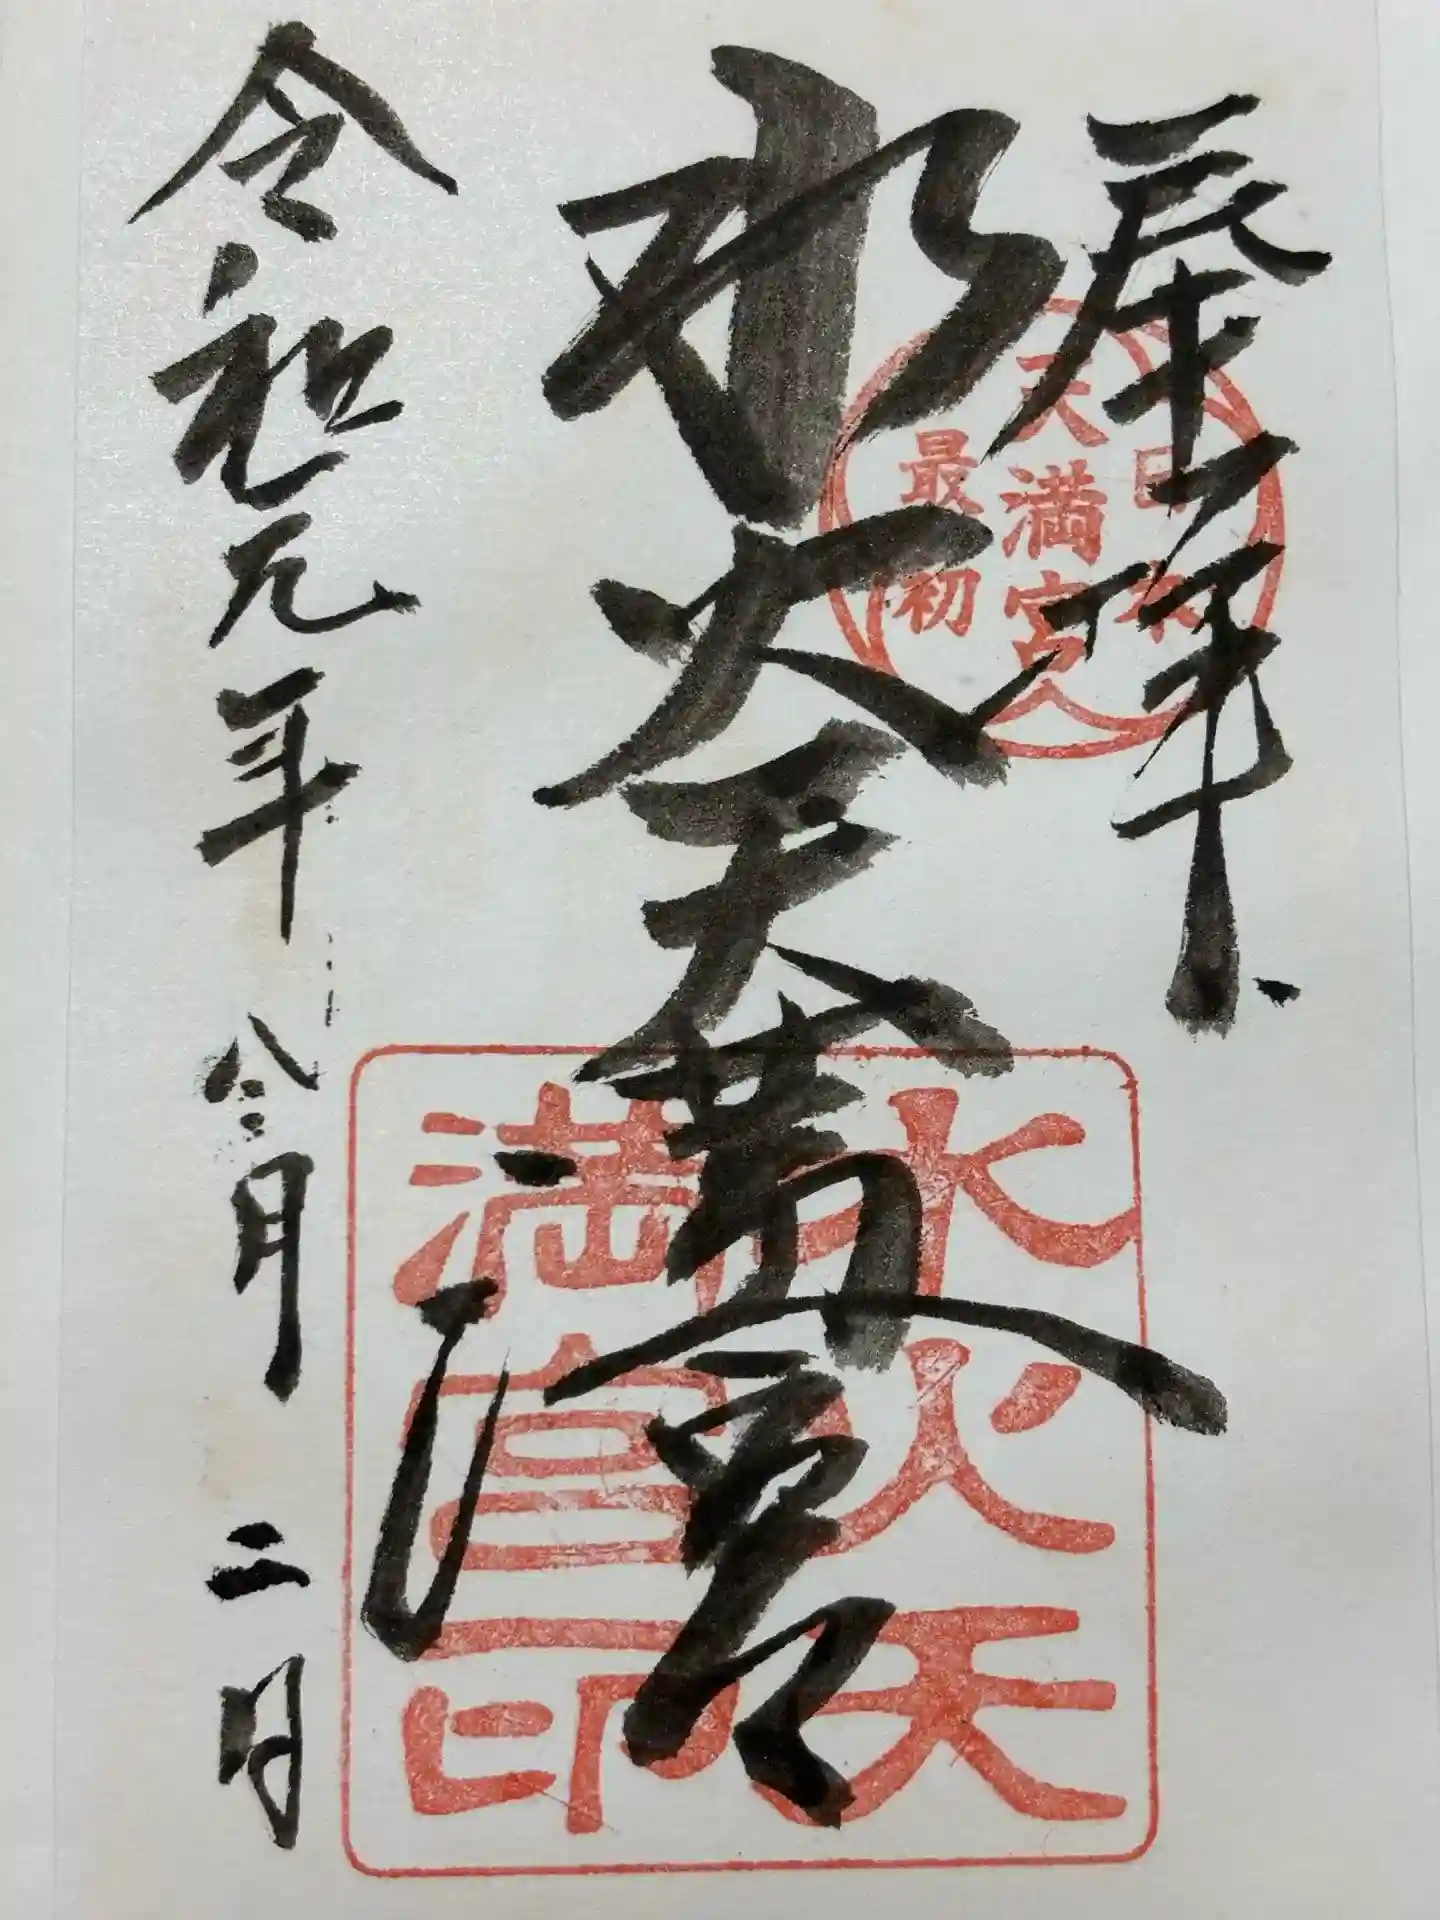 奉拝
日本
天満宮
最初
水火天満宮
水火天
満宮印
令和元年八月二日